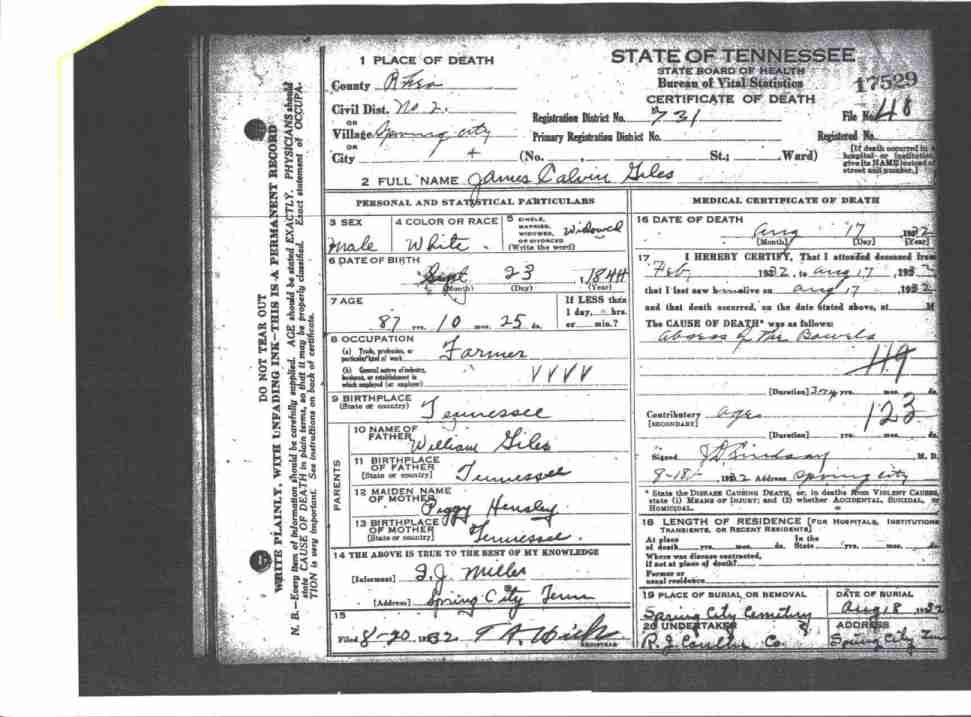 DO NOT TEAR OUT
WRITE PLAINLY, WITH UNFADING INK—THIS IS A PERMANENT RECORD
N. B.—Every item of information should be carefully supplied. AGE should be stated EXACTLY. PHYSICIANS should
state CAUSE OF DEATH in plain terms, so that it may be properly classified. Exact statement of OCCUPA-
TION is very important. See instructions on back of certificate.
1 PLACE OF DEATH
County Rhea
Civil Dist. No 2.
OR
Village Spring City
OR
City
STATE OF TENNESSEE
STATE BOARD OF HEALTH
Bureau of Vital Statistics
CERTIFICATE OF DEATH
17529
Registration District No. 731
File No. 48
Primary Registration District No.
Registered No.
(No. , St.; Ward)
[If death occurred in a
hospital or institution,
give its NAME instead of
street and number.]
2 FULL NAME James Calvin Giles
PERSONAL AND STATISTICAL PARTICULARS
3 SEX
Male
4 COLOR OR RACE
White
5 SINGLE,
MARRIED,
WIDOWED,
OR DIVORCED
(Write the word)
Widowed
6 DATE OF BIRTH
Sept 23, 1844
(Month) (Day) (Year)
7 AGE
87 yrs. 10 mos. 25 ds.
If LESS than
1 day, hrs.
or min.?
8 OCCUPATION
(a) Trade, profession, or
particular kind of work
Farmer
(b) General nature of industry,
business, or establishment in
which employed (or employer)
VVVV
9 BIRTHPLACE
(State or country)
Tennessee
PARENTS
10 NAME OF
FATHER
William Giles
11 BIRTHPLACE
OF FATHER
(State or country)
Tennessee
12 MAIDEN NAME
OF MOTHER
Peggy Hensley
13 BIRTHPLACE
OF MOTHER
(State or country)
Tennessee.
14 THE ABOVE IS TRUE TO THE BEST OF MY KNOWLEDGE
[Informant] Miller
[Address] Spring City Tenn
15
Filed 8-20 1932
REGISTRAR
MEDICAL CERTIFICATE OF DEATH
16 DATE OF DEATH
Aug 17 1932
(Month) (Day) (Year)
17 I HEREBY CERTIFY, That I attended deceased from
Feb 1932, to Aug 17, 1932
that I last saw him alive on Aug 17, 1932
and that death occurred, on the date stated above, at M
The CAUSE OF DEATH* was as follows:
Abscess of The Bowels
119
(Duration) yrs. mos. ds.
Contributory Age
[SECONDARY]
123
(Duration) yrs. mos. ds.
Signed M. D.
8-18- 1932 Address Spring City
* State the DISEASE CAUSING DEATH, or, in deaths from VIOLENT CAUSES,
state (1) MEANS OF INJURY; and (2) whether ACCIDENTAL, SUICIDAL, or
HOMICIDAL.
18 LENGTH OF RESIDENCE [FOR HOSPITALS, INSTITUTIONS
TRANSIENTS, OR RECENT RESIDENTS]
At place
of death yrs. mos. ds.
In the
State yrs. mos. ds.
Where was disease contracted,
if not at place of death?
Former or
usual residence
19 PLACE OF BURIAL OR REMOVAL
Spring City Cemetery
DATE OF BURIAL
Aug 18 1932
20 UNDERTAKER
R. J. Coulter Co.
ADDRESS
Spring City Tenn